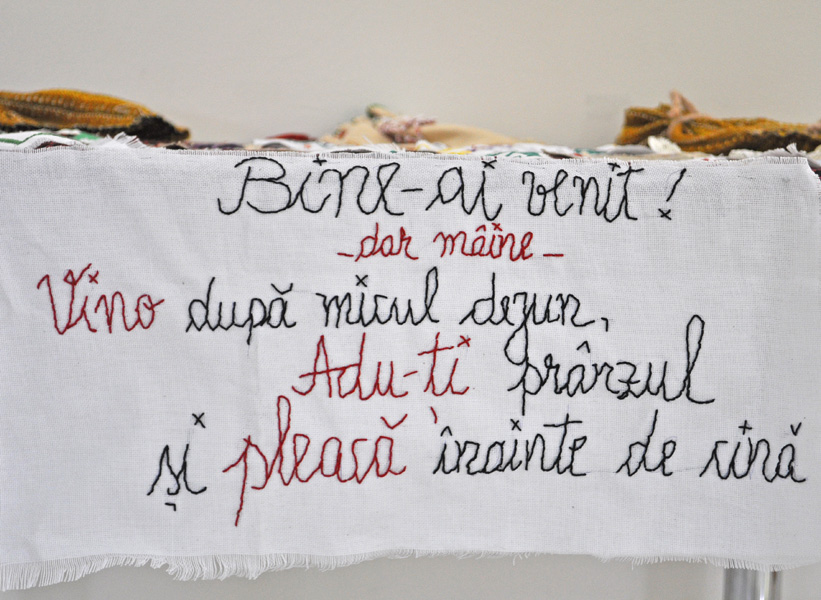 Bine-ai venit!
-dar mâine-
Vino după micul dejun,
Adu-ți prânzul
și pleacă înainte de cină